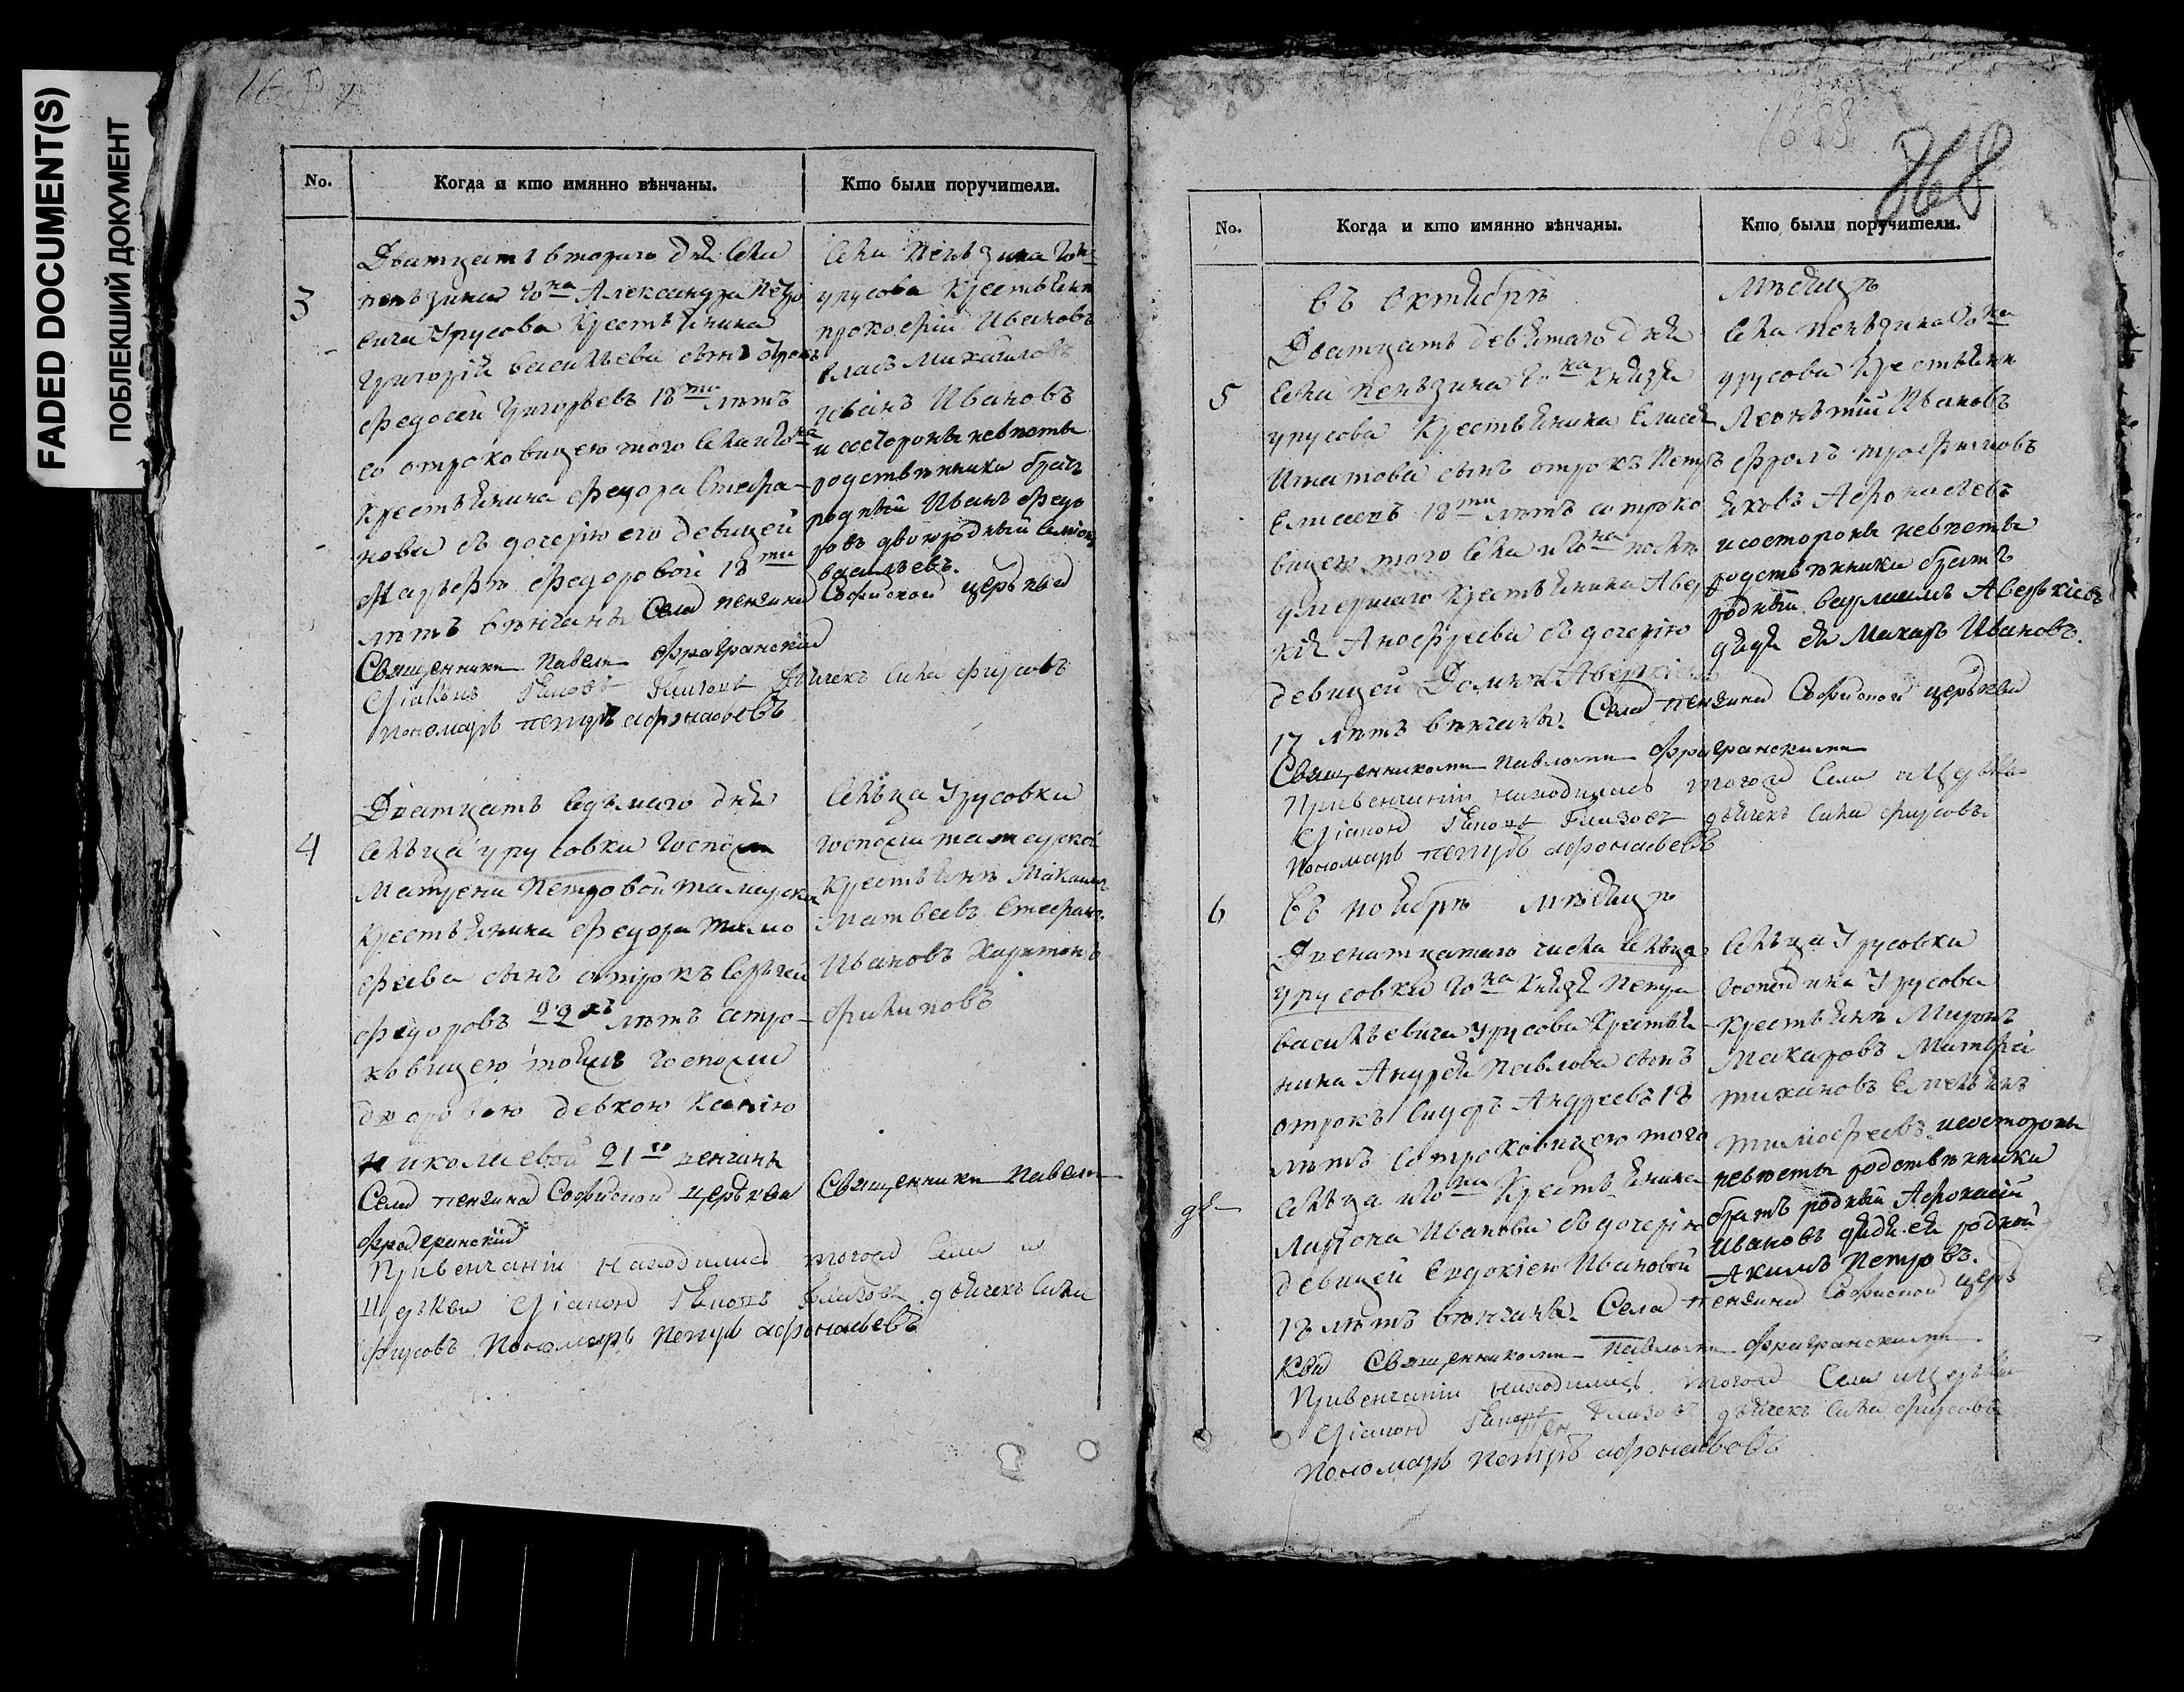 FADED DOCUMENT(S)
ПОБЛЕКШИЙ ДОКУМЕНТ
No.
Когда и кто имянно вѣнчаны.
Кто были поручители.
3
Дватцать втораго дня села
пенѣзина Гона Александра Петро
вича Урусова крестьянина
Григорій васильева сынъ отрокъ
Федосей Григорьевъ 18ти лѣтъ
со отроковицею того села и Гона
крестьянина Федора Стефа-
нова съ дочерію его девицей
Федоровой 18ти
лѣтъ венчаны Села пензина Софиской церькви
Священники Павелъ Фраgранскій
пономарь петръ афонасьевъ
села пенѣзина Гона
урусова крестьяня
прокофій Ивановъ
власъ Михайловъ
Иванъ Ивановъ
и состороны невесты
родственники братъ
родный Иванъ Федо
ровъ двоюродный Семіонъ
васильевъ.
4
Дватцать седьмаго дня
сельца урусовки Госпожи
Матрены Петровой
крестьянина Федора тимо
феева сынъ отрокъ Сергей
Федоровъ 22хъ лѣтъ сотро-
ковицею тоёжъ Госпожи
дворовою девкою
Николаевой 21го венчаны
Села пензина Софиской церькви Священники Павелъ
При венчаніи находились тогожъ Села и
Церькви дьячекъ Сила Фирсовъ
Пономарь Петръ афонасьевъ
сельца Урусовки
Госпожи
крестьяня
Матвеевъ Стефанъ
Ивановъ Харитонъ
Филиповъ
1688
368
No.
Когда и кто имянно вѣнчаны.
Кто были поручители.
въ октябрѣ мѣсяцѣ
5
Дватцать девятаго дня
села пенѣзина Гона Князя
урусова крестьянина Елисея
Игнатова сынъ отрокъ Петръ
Елисеевъ 18ти лѣтъ сотроко
вицею того села и Гона
умершаго крестьянина Авер
кія Анофреева съ дочерію
девицей Домной Аверкіевой
17 лѣтъ венчаны. Села пензина Софиской церькви
Священникомъ Павломъ Фраgранскимъ
При венчаніи находились тогожъ Села и Церькви
дьячекъ Сила Фирсовъ
Пономарь петръ афонасьевъ
села пенѣзина Гона
урусова крестьяня
Леонътій Ивановъ
Фролъ трофимовъ
Яковъ Афонасьевъ
и состороны невесты
родственники братъ
родный варламъ Аверькіевъ
дядя ея Макаръ Ивановъ.
6
Въ ноябрѣ мѣсяцѣ
Двенатцатаго числа сельца
урусовки Гона Князя Петра
васильевича Урусова крестья-
нина Андрея Павлова сынъ
отрокъ Сидоръ Андреевъ 18
лѣтъ сотроковицею того
сельца и Гона крестьянина
Ивана Иванова съ дочерію
девицей Евдокіею Ивановой
18 лѣтъ венчаны. Села пензина Софиской церь
кви Священникомъ Павломъ Фраgранскимъ
При венчаніи находились тогожъ Села и Церькви
дьячекъ Сила Фирсовъ
Пономарь Петръ афонасьевъ
сельца Урусовки
Господина Урусова
крестьяня Миронъ
Макаровъ Матвей
тихановъ Емельянъ
тимофеевъ и состороны
невесты родственники
братъ родный Афонасій
Ивановъ дядя ея родной
Акимъ Петровъ.